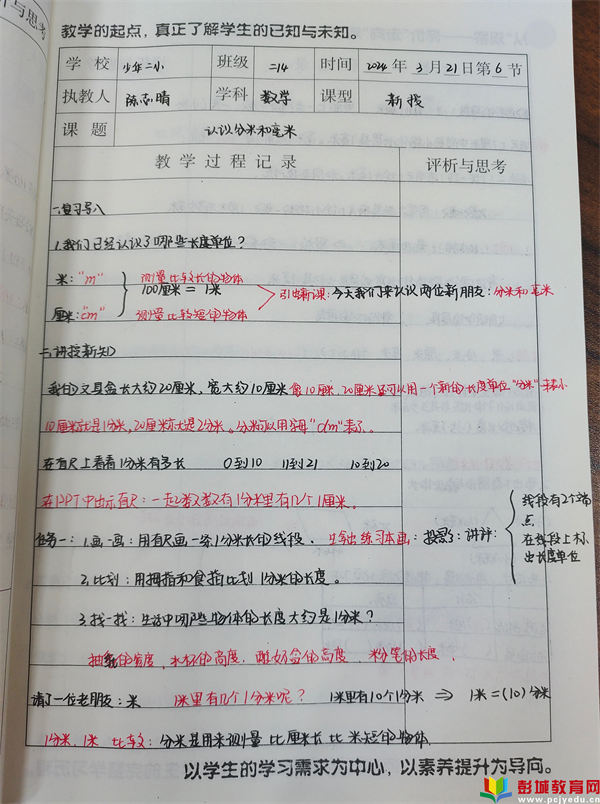 教学的起点,真正了解学生的已知与未知。
学校 少年二小 班级 二14 时间 2024年3月21日第6节
执教人 陈志晴 学科 数学 课型 新授
课题 认识分米和毫米
教学过程记录 评析与思考
一.复习导入
1.我们已经认识了哪些长度单位?
米:"m" 测量比较长的物体
100厘米=1米 引出新课:今天我们来认识两位新朋友:分米和毫米
厘米:"cm" 测量比较短的物体
二.讲授新知
我的文具盒长大约20厘米,宽大约10厘米 像10厘米,20厘米还可以用一个新的长度单位"分米"来表示
10厘米就是1分米,20厘米就是2分米。分米可以用字母"dm"表示。
在直尺上看看1分米有多长 0到10 11到21 10到20
在PPT中出示直尺:一起数数有1分米里有几个1厘米。
任务一:1.画一画:用直尺画一条1分米长的线段。生独出练习本画:投影:讲评:
线段有2个端点
在线段上标出长度单位
2.比划:用拇指和食指比划1分米的长度。
3.找一找:生活中哪些物体的长度大约是1分米?
抽屉的宽度,水杯的高度,酸奶盒的高度,粉笔的长度,
请了一位老朋友:米 1米里有几个1分米呢? 1米里有10个1分米 ⇒ 1米=(10)分米
1分米,1米 比较:分米是用来测量比厘米长比米短的物体
以学生的学习需求为中心,以素养提升为导向。
彭城教育网
www.pcjyedu.cn